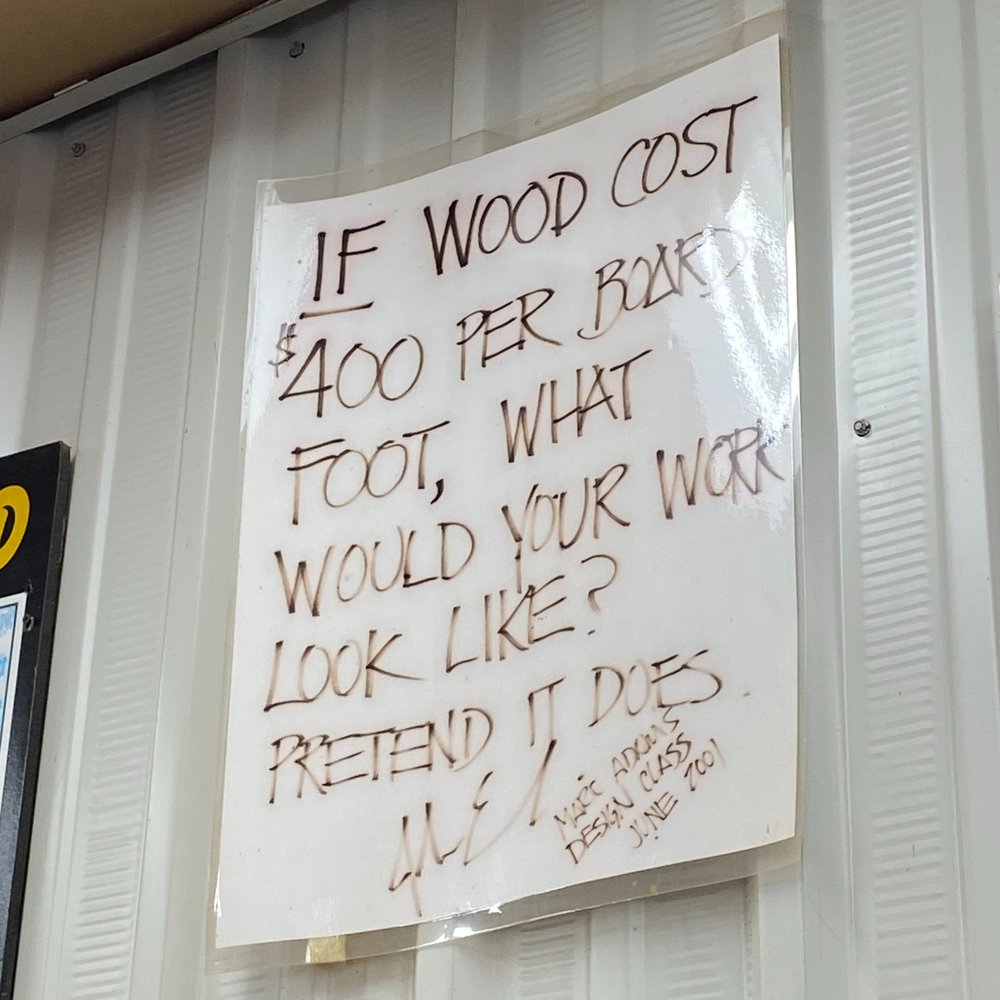 IF WOOD COST
$400 PER BOARD
FOOT, WHAT
WOULD YOUR WORK
LOOK LIKE?
PRETEND IT DOES.
MARC ADAMS
DESIGN CLASS
JUNE 2001